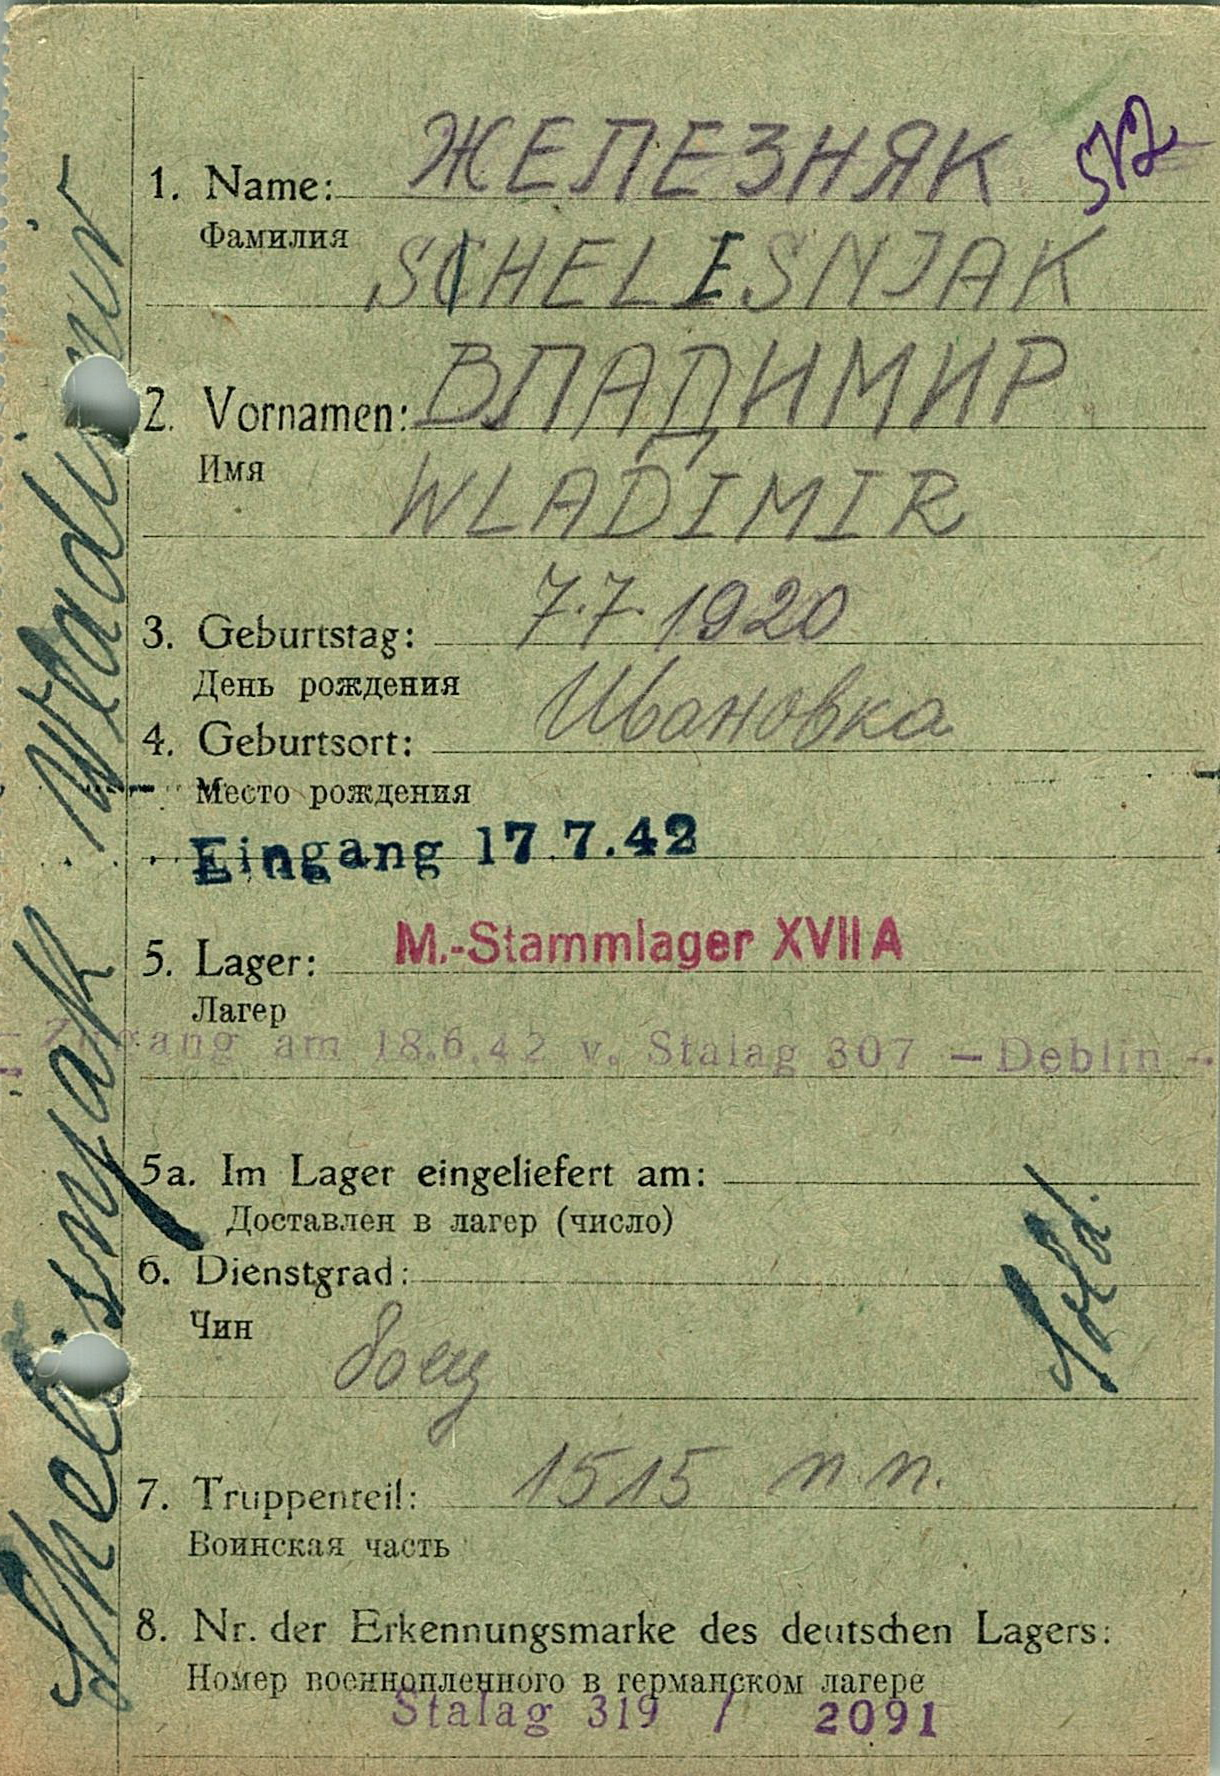 ЖЕЛЕЗНЯК
1. Name:
Фамилия
SCHELESNJAK
ВЛАДИМИР
2. Vornamen:
Имя
WLADIMIR
7.7.1920
3. Geburtstag:
День рождения
Ивановка
4. Geburtsort:
Место рождения
Eingang 17.7.42
5. Lager: M.-Stammlager XVII A
Лагер
- Zugang am 18.6.42 v. Stalag 307 - Deblin -
5a. Im Lager eingeliefert am:
Доставлен в лагер (число)
6. Dienstgrad:
Sold.
Чин
боец
7. Truppenteil: 1515 п.п.
Воинская часть
8. Nr. der Erkennungsmarke des deutschen Lagers:
Номер военнопленного в германском лагере
Stalag 319 / 2091
Shelisnjak Wladimir